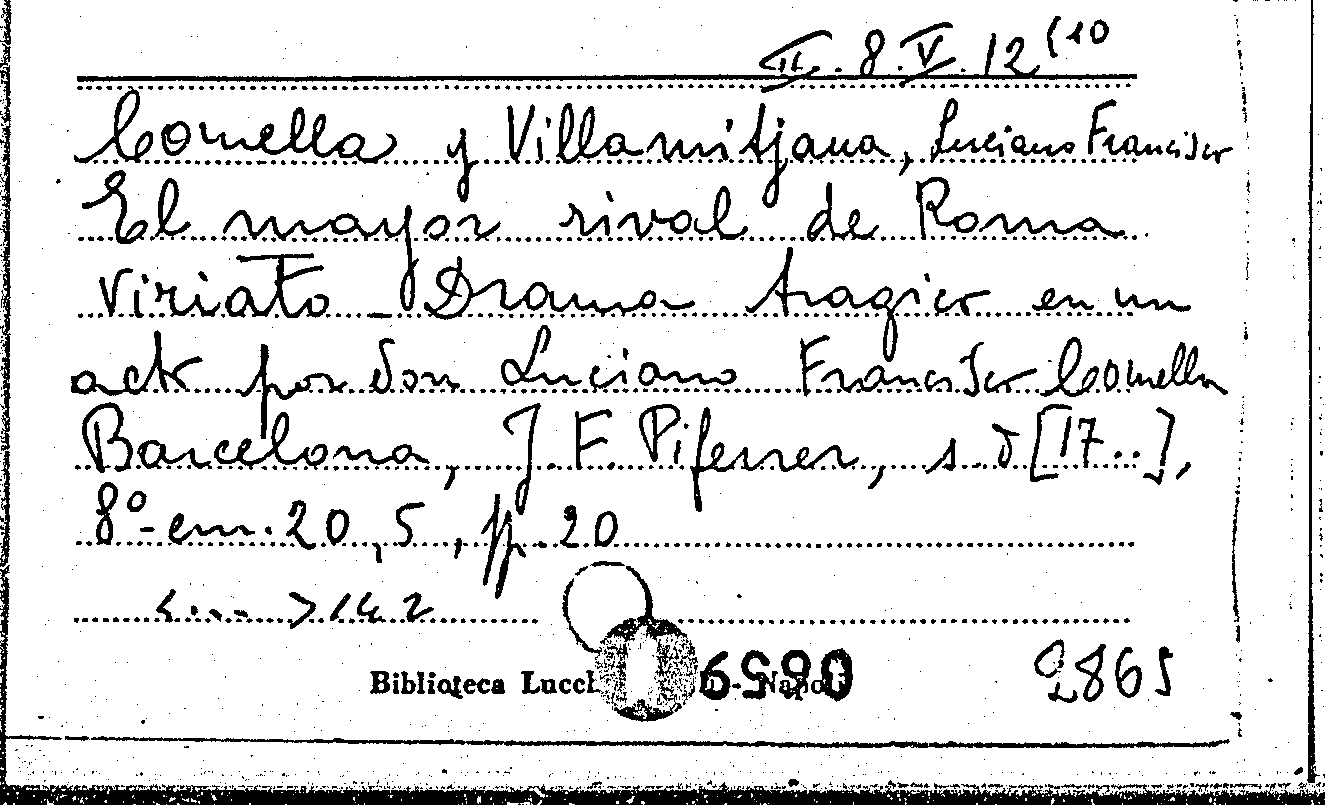 II. 8. V. 12 (10
Comella y Villamitjana, Luciano Francisco
El mayor rival de Roma
Viriato - Drama tragico en un
acto por don Luciano Francisco Comella
Barcelona, J. F. Piferrer, s. d [17..],
8º - cm. 20,5, pp. 20
< ... > 142
Biblioteca Lucch - Napoli
2865